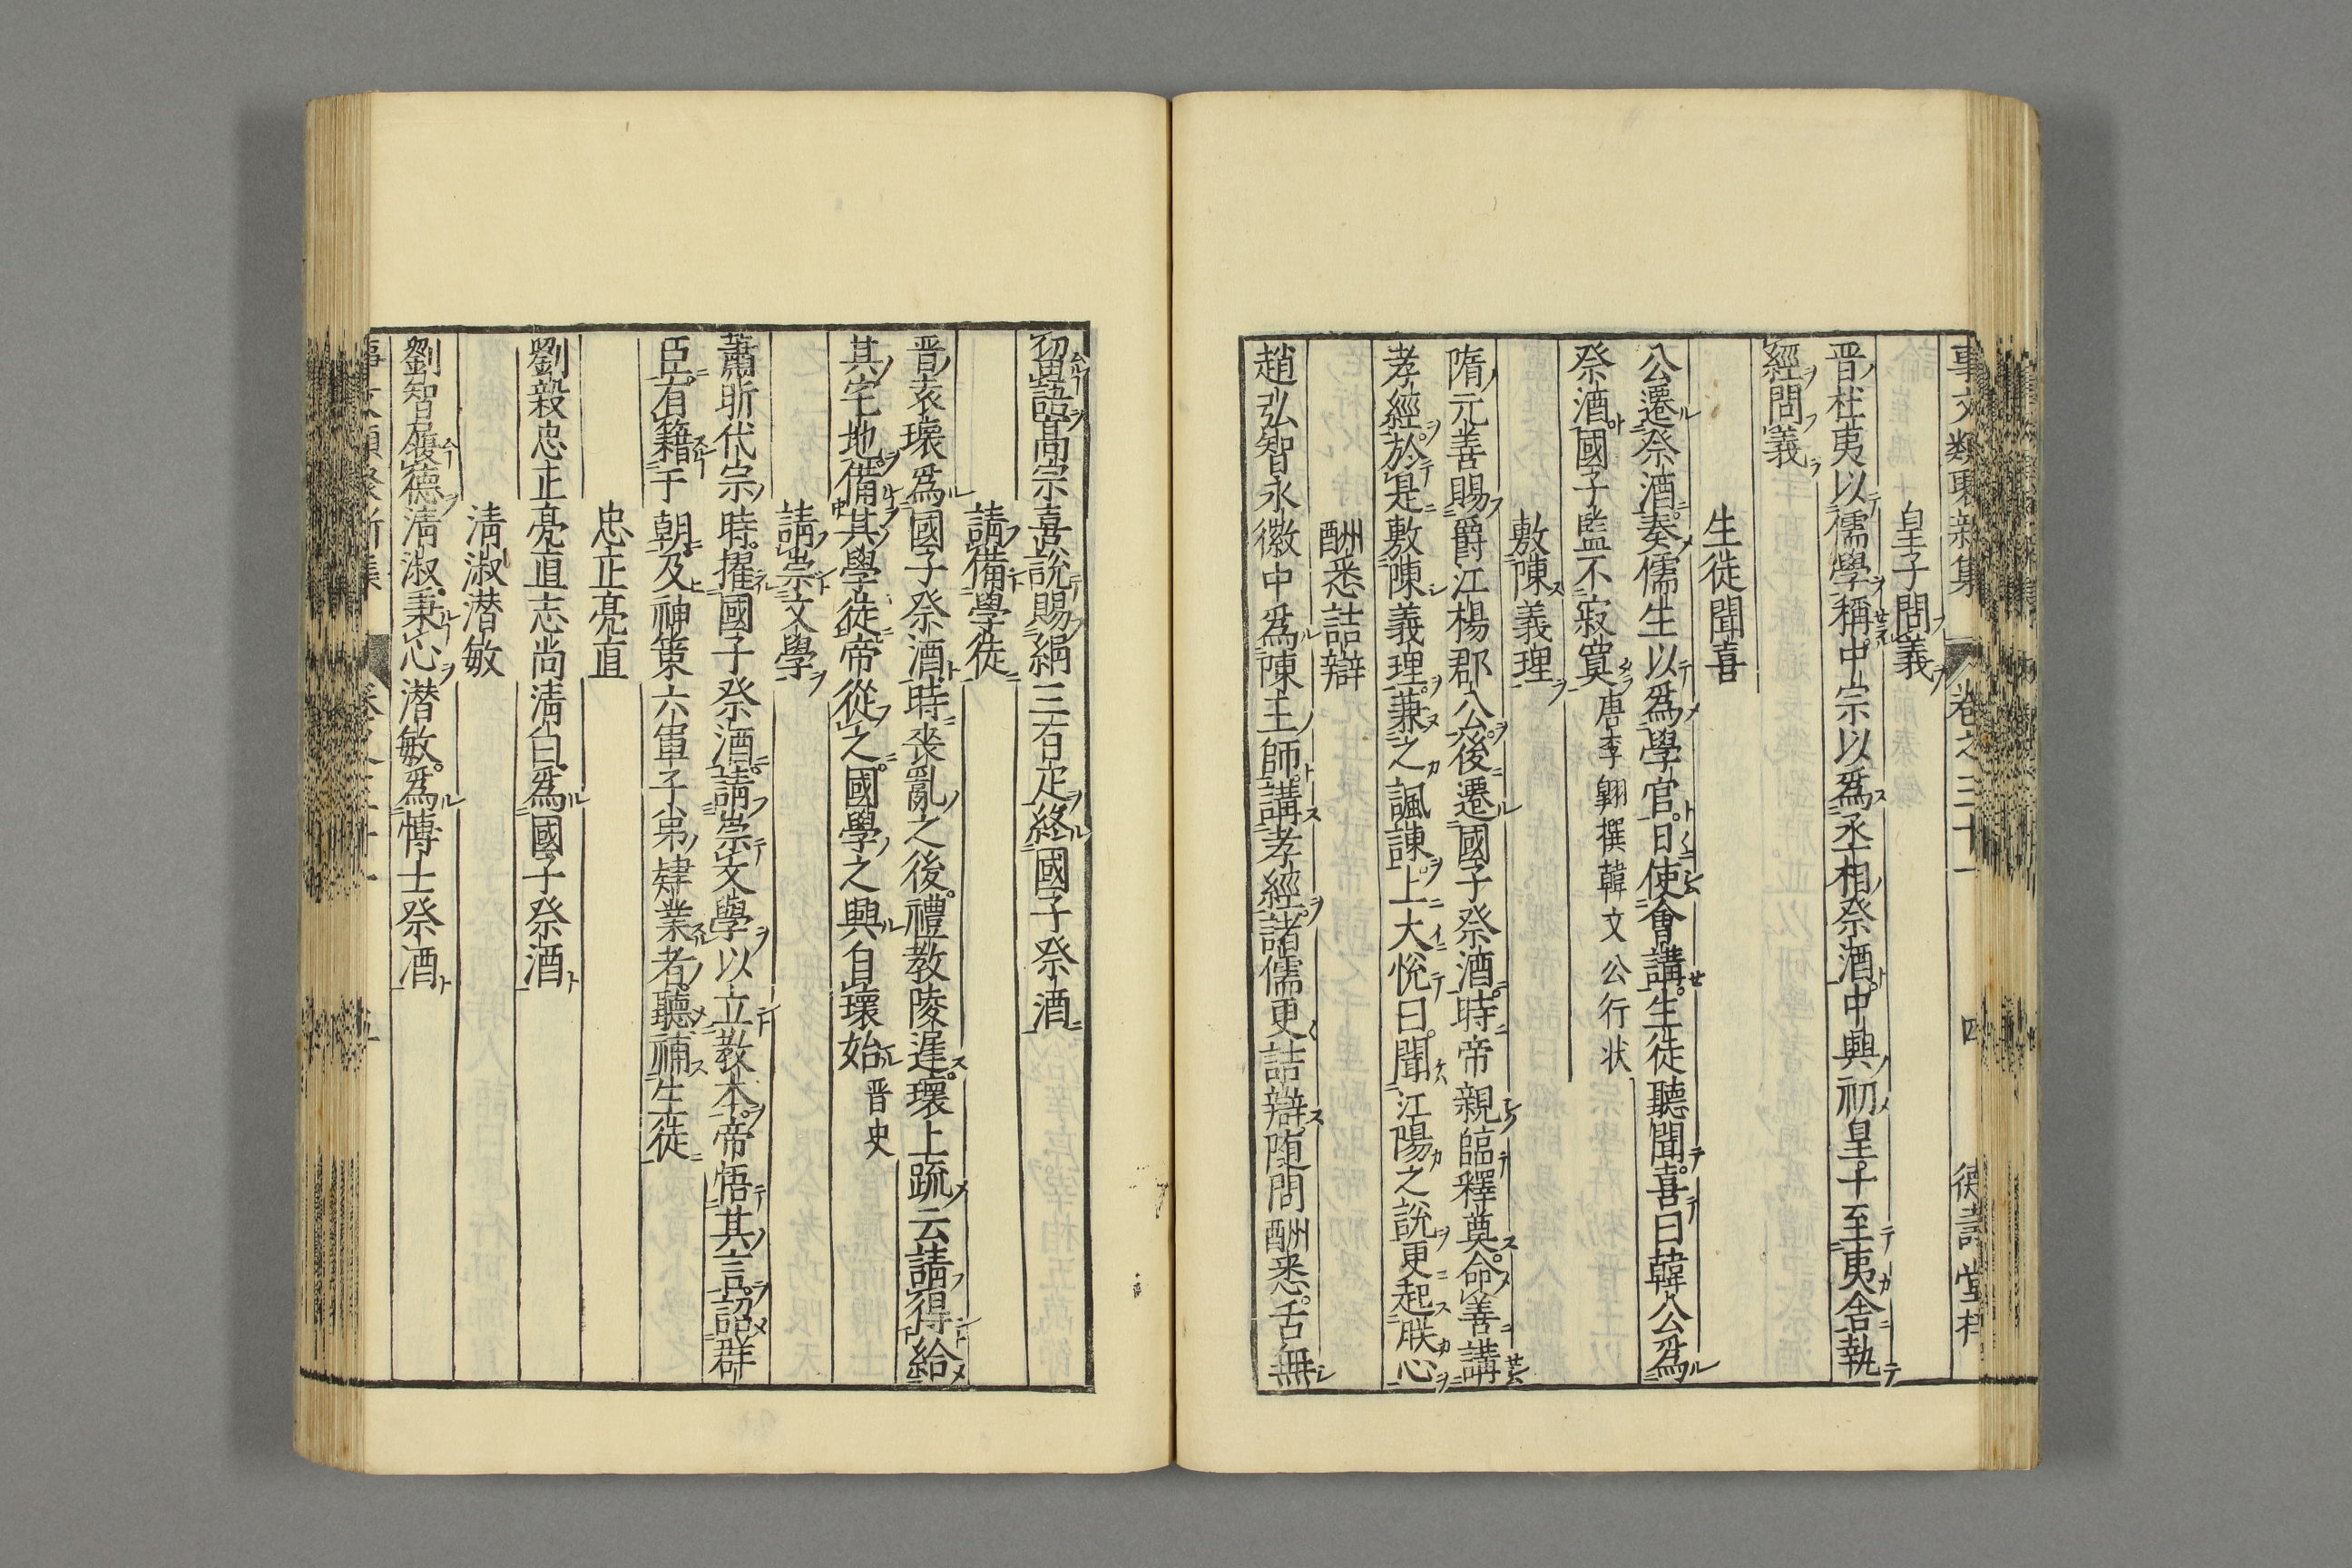 事文類聚新集 卷之三十一 四 德壽堂梓
皇子問義
晋杜夷以儒學稱中宗以爲丞相祭酒中興初皇十至夷舍執
經問義
生徒聞喜
公遷祭酒奏儒生以爲學官日使會講生徒聽聞喜曰韓公爲
祭酒國子監不寂寞唐李翶撰韓文公行状
敷陳義理
隋元善賜爵江楊郡公後遷國子祭酒時帝親臨釋奠命善講
孝經於是敷陳義理兼之諷諫上大悅曰聞江陽之說更起朕心
酬悉詰辯
趙弘智永徽中爲陳王師講孝經諸儒更詰辯随問酬悉舌無
留語高宗喜說賜絹三百疋終國子祭酒
請備學徒
晋袁瓌爲國子祭酒時喪亂之後禮教陵遲瓌上疏云請得給
其宅地備其學徒帝從之國學之興自瓌始晋史
請崇文學
蕭昕代宗時擢國子祭酒請崇文學以立教本帝悟其言詔群
臣有籍于朝及神策六軍子弟肄業者聽補生徒
忠正亮直
劉毅忠正亮直志尚清白爲國子祭酒
清淑潜敏
劉智履德清淑秉心潜敏爲博士祭酒